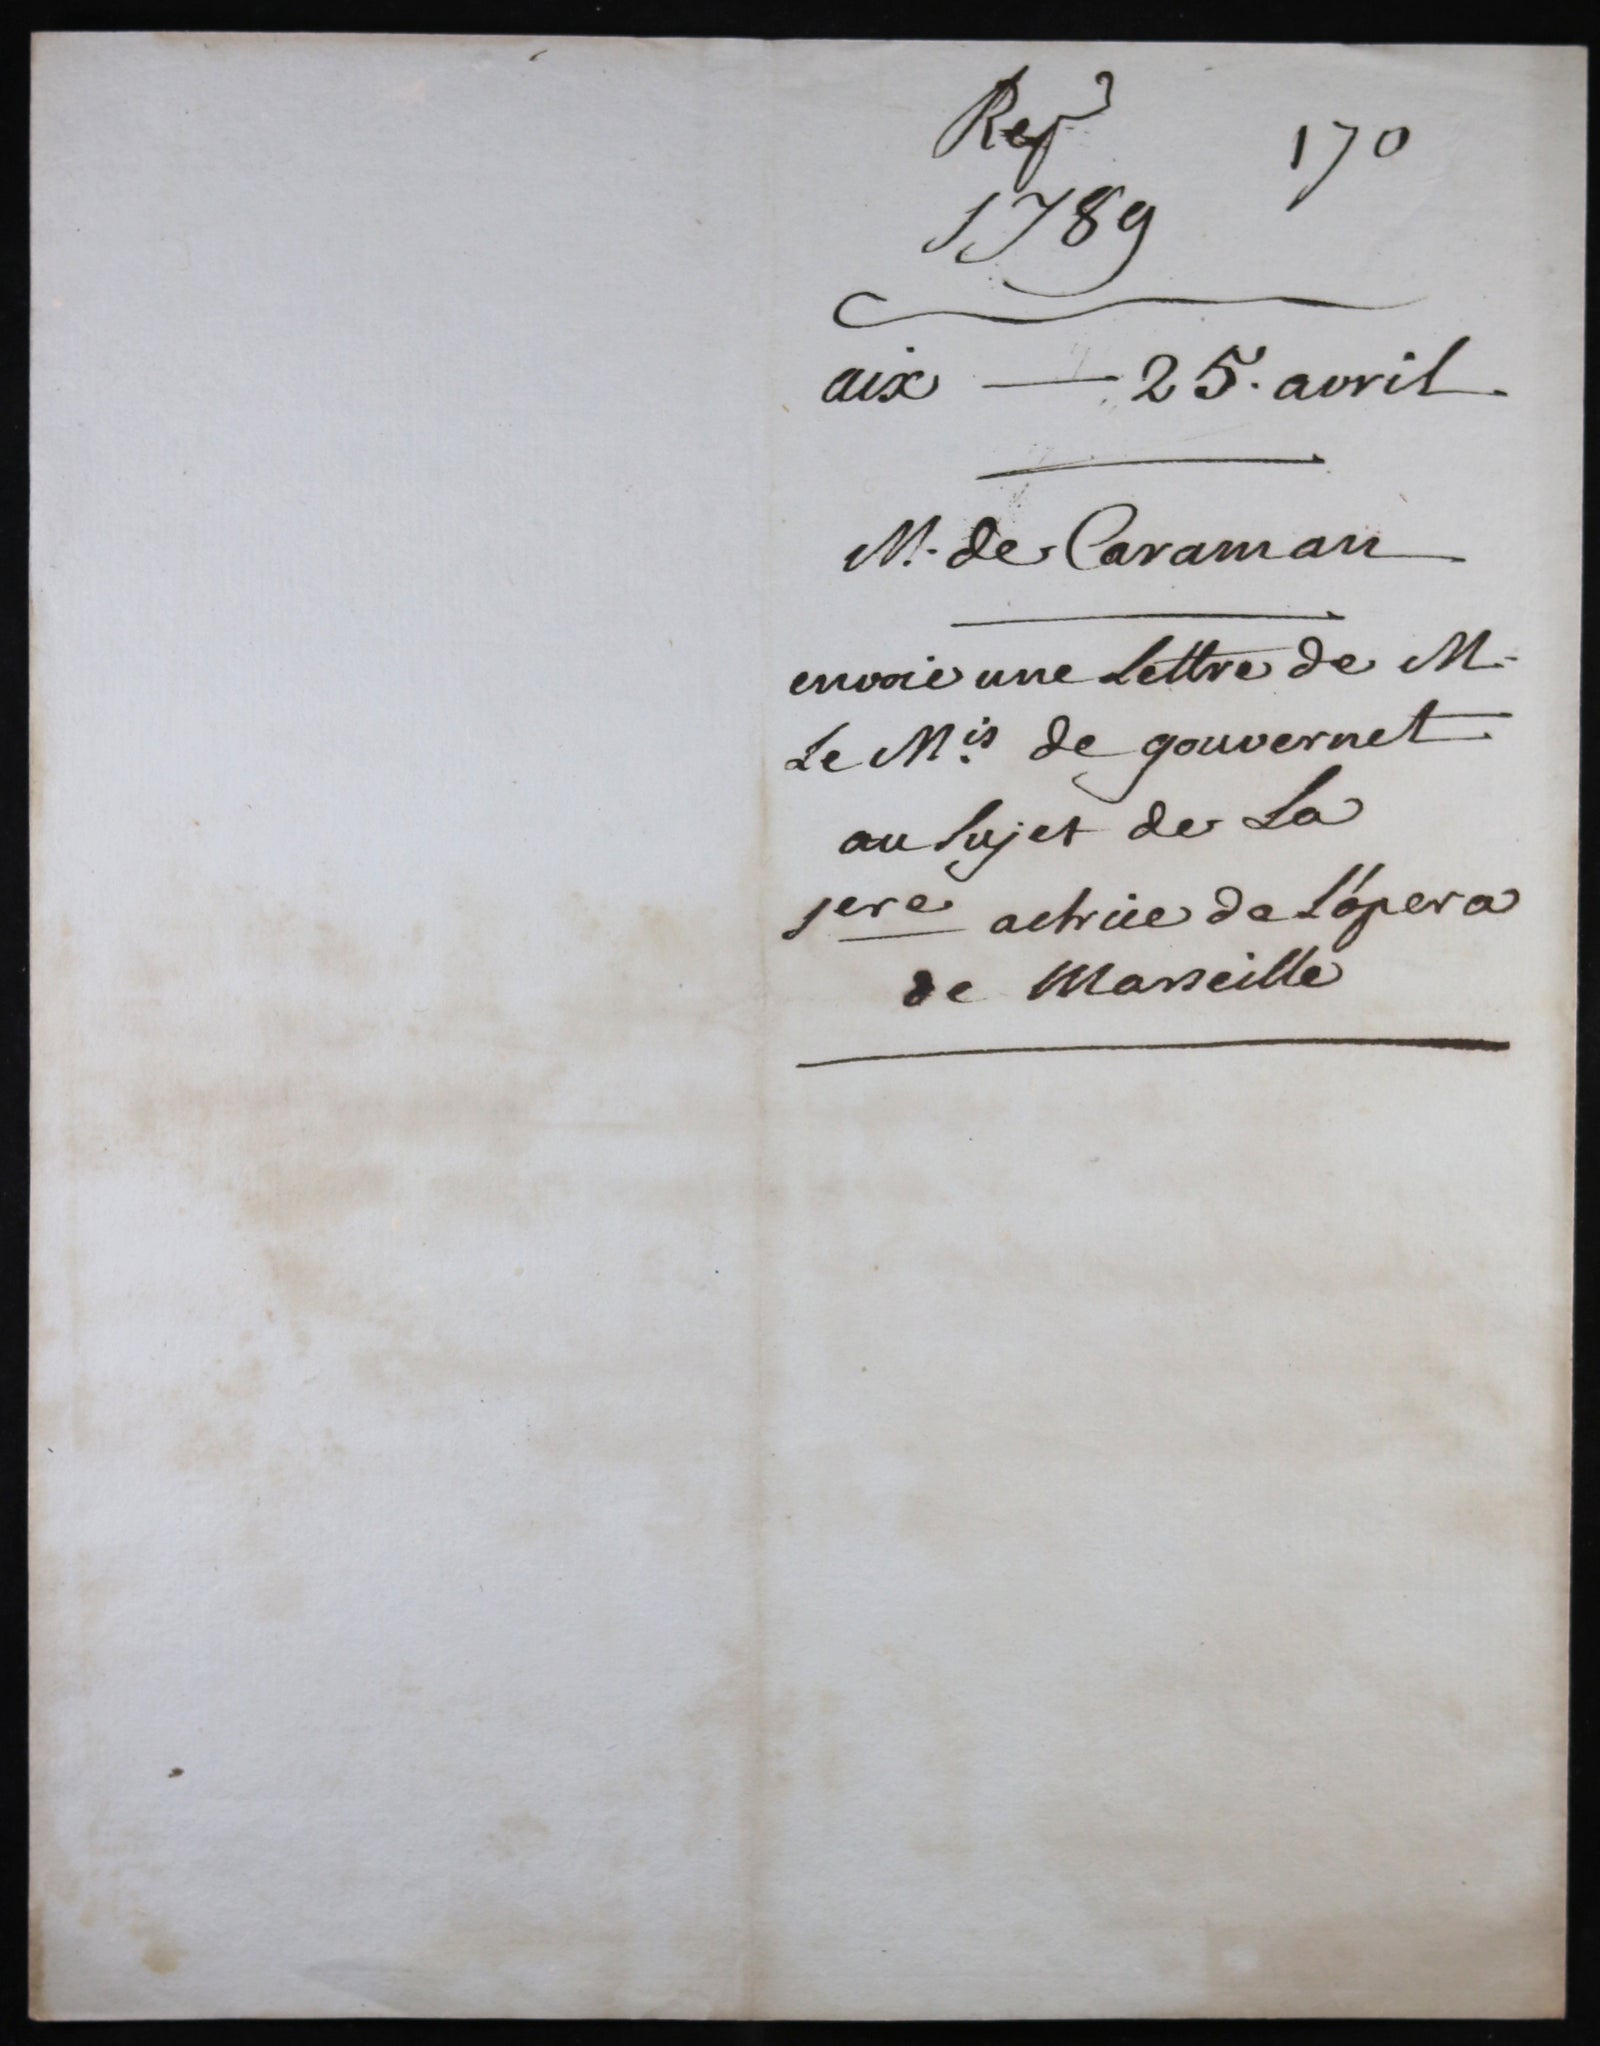 Rep 170
1789
aix — 25. avril
M. de Caraman
envoie une Lettre de M.
Le M.is de gouvernet
au sujet de La
1ere actrice de L'opera
de Marseille